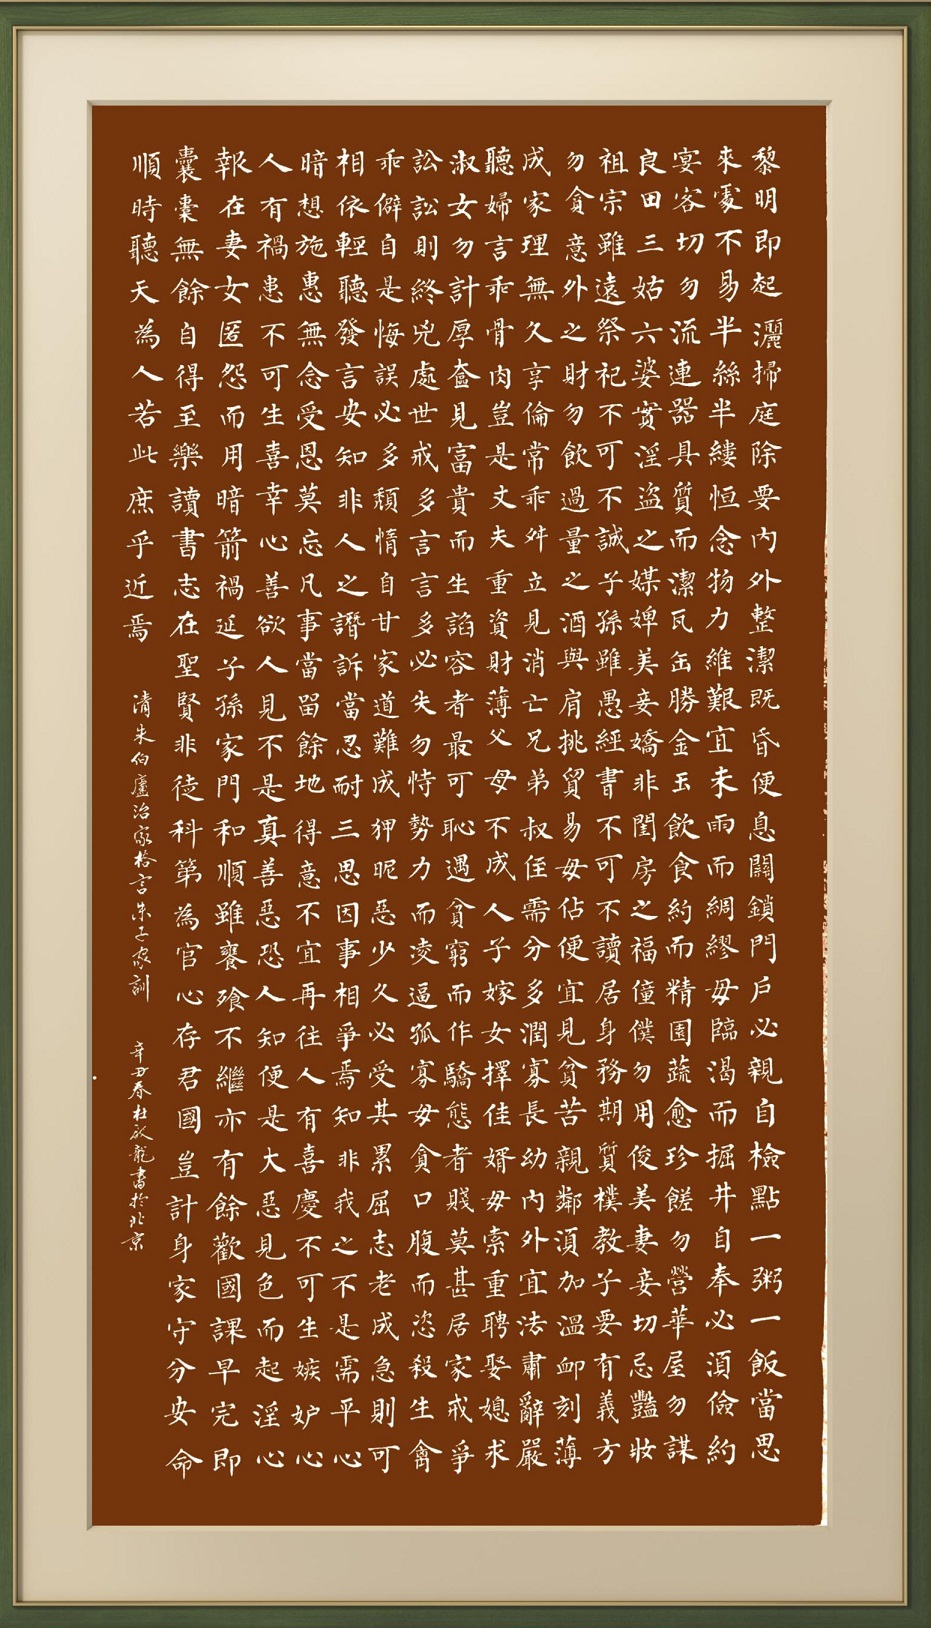 黎明即起灑掃庭除要內外整潔既昏便息關鎖門戶必親自檢點一粥一飯當思
來處不易半絲半縷恒念物力維艱宜未雨而綢繆毋臨渴而掘井自奉必須儉約
宴客切勿流連器具質而潔瓦缶勝金玉飲食約而精園蔬愈珍饈勿營華屋勿謀
良田三姑六婆實淫盜之媒婢美妾嬌非閨房之福僮僕勿用俊美妻妾切忌豔妝
祖宗雖遠祭祀不可不誠子孫雖愚經書不可不讀居身務期質樸教子要有義方
勿貪意外之財勿飲過量之酒與肩挑貿易毋佔便宜見貧苦親鄰須加溫卹刻薄
成家理無久享倫常乖舛立見消亡兄弟叔侄需分多潤寡長幼內外宜法肅辭嚴
聽婦言乖骨肉豈是丈夫重資財薄父母不成人子嫁女擇佳婿毋索重聘娶媳求
淑女勿計厚奩見富貴而生諂容者最可恥遇貧窮而作驕態者賤莫甚居家戒爭
訟訟則終兇處世戒多言言多必失勿恃勢力而凌逼孤寡毋貪口腹而恣殺生禽
乖僻自是悔誤必多頹惰自甘家道難成狎昵惡少久必受其累屈志老成急則可
相依輕聽發言安知非人之譖訴當忍耐三思因事相爭焉知非我之不是需平心
暗想施惠無念受恩莫忘凡事當留餘地得意不宜再往人有喜慶不可生嫉妒心
人有禍患不可生喜幸心善欲人見不是真善惡恐人知便是大惡見色而起淫心
報在妻女匿怨而用暗箭禍延子孫家門和順雖饔飧不繼亦有餘歡國課早完即
囊橐無餘自得至樂讀書志在聖賢非徒科第為官心存君國豈計身家守分安命
順時聽天為人若此庶乎近焉
清朱伯廬治家格言朱子家訓 辛丑春杜啟龍書於北京